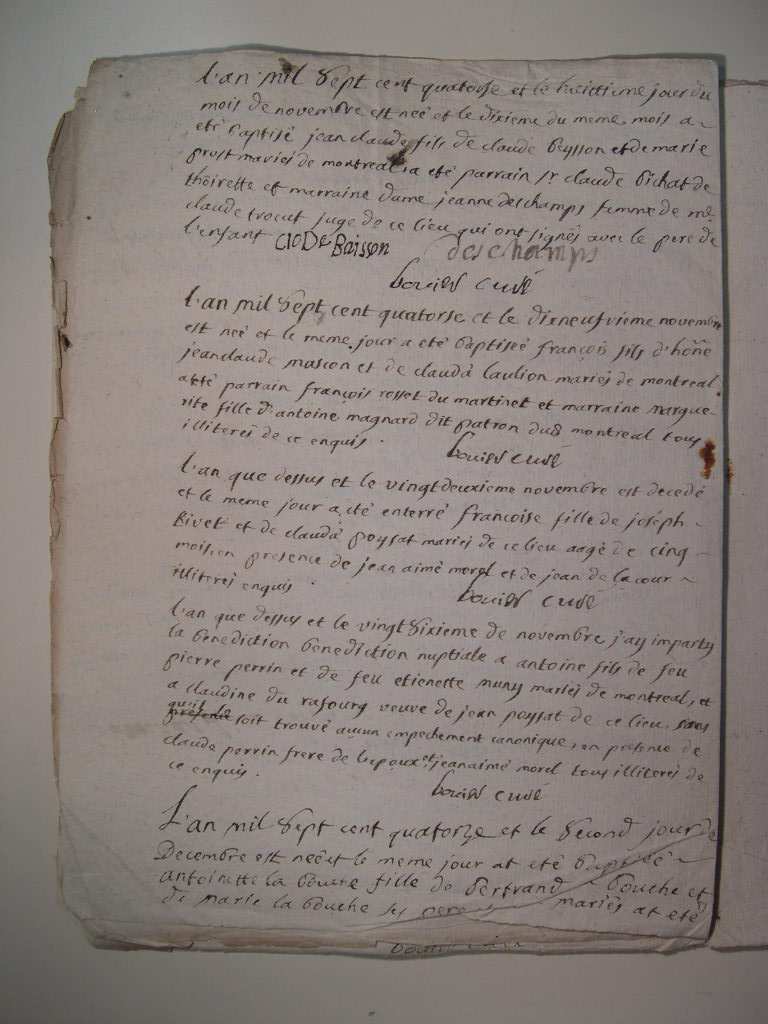 L'an mil sept cent quatorse et le huictiême jour du
mois de novembre est neé et le dixieme du meme mois a
eté baptisé jean claude fils de claude beysson et de marie
prost mariés de montreal, a eté parrain sr claude bichat de
thoirette et marraine dame jeanne deschamps femme de me
claude trocut juge de ce lieu qui ont signés avec le pere de
l'enfant CloDe Baisson deschamps
bouier curé
L'an mil sept cent quatorse et le dixneufvieme novembre
est neé et le meme jour a eté baptiseé françois fils d'hône
jeanclaude masson et de claudâ laulion mariés de montreal
a eté parrain françois rosset du martinet et marraine margue-
rite fille d'antoine magnard dit patron dud montreal tous
illiterés de ce enquis.
bouier curé
L'an que dessus et le vingtdeuxieme novembre est decedé
et le meme jour a eté enterré francoise fille de joseph
Rivet et de claudâ poysat mariés de ce lieu aageé de cinq
mois, en presence de jean aimé morel et de jean de la cour
illiterés enquis.
bouier curé
L'an que dessus et le vingt sixieme de novembre j'ay imparty
la benediction benediction nuptiale a antoine fils de feu
pierre perrin et de feu etienette muny mariés de montreal, et
a claudine du rafourg veuve de jean poysat de ce lieu, sans
qu'il
soit trouvé aucun empechement canonique, en presence de
claude perrin frere de l'epoux, et jeanaimé morel tous illiterés de
ce enquis.
bouier curé
L'an mil sept cent quatorze et le second jour de
Decembre est neé et le meme jour at eté baptiseé
antoinette la bouche fille de bertrand bouche et
de marie la bouche ses pere mariés at eté